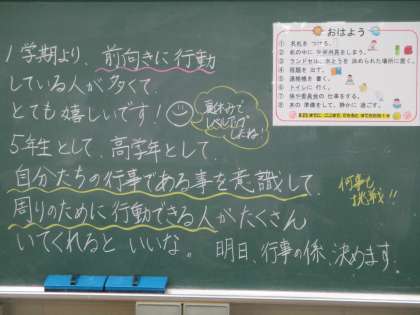 1学期より、前向きに行動
している人が多くて
とても嬉しいです!
夏休みで
レベルアップ
したね!
5年生として、高学年として、
自分たちの行事である事を意識して、
周りのために行動できる人がたくさん
いてくれるといいな。
何事も
挑戦!!
明日、行事の係、決めます。
おはよう
① 名札を つける。
③ ランドセル、水とうを 決められた場所に置く。
④ 宿題を 出す。
⑤ 連絡帳を 書く。
⑥ トイレに 行く。
⑧ 本の 準備をして、静かに 過ごす。